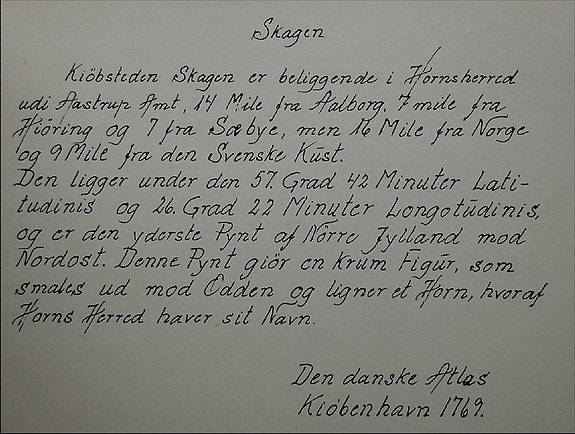 Skagen
Kiöbsteden Skagen er beliggende i Hornsherred
udi Aastrup Amt, 14 Mile fra Aalborg, 7 mile fra
Hiöring og 7 fra Sæbye, men 16 Mile fra Norge
og 9 Mile fra den Svenske Kust.
Den ligger under den 57. Grad 42 Minuter Lati-
tudinis og 26. Grad 22 Minuter Longotudinis,
og er den yderste Pynt af Nörre Jylland mod
Nordost. Denne Pynt giör en krum Figur, som
smales ud mod Odden og ligner et Horn, hvoraf
Horns Herred haver sit Navn.
Den danske Atlas
Kiöbenhavn 1769.